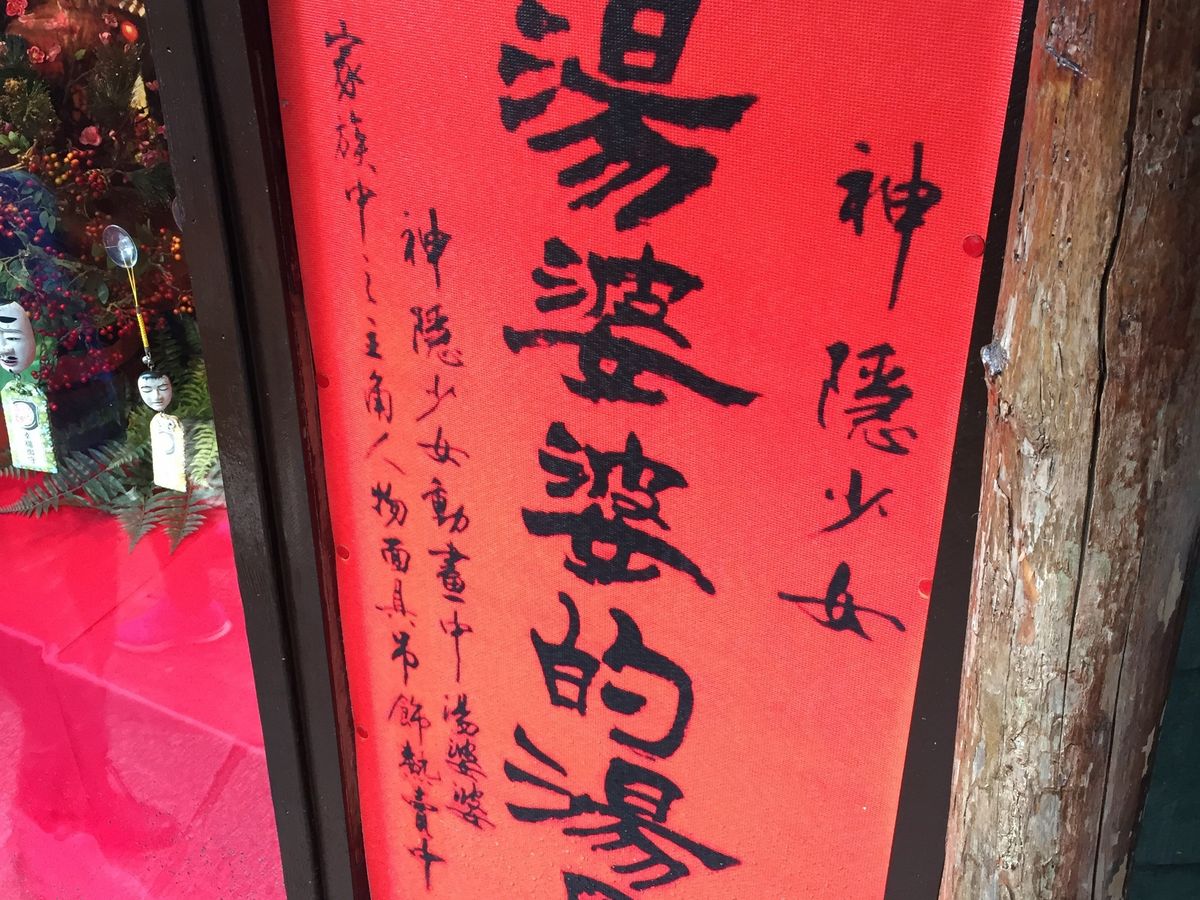 神隱少女
湯婆婆的湯
神隱少女動畫中湯婆婆
家族中之主角人物面具吊飾熱賣中